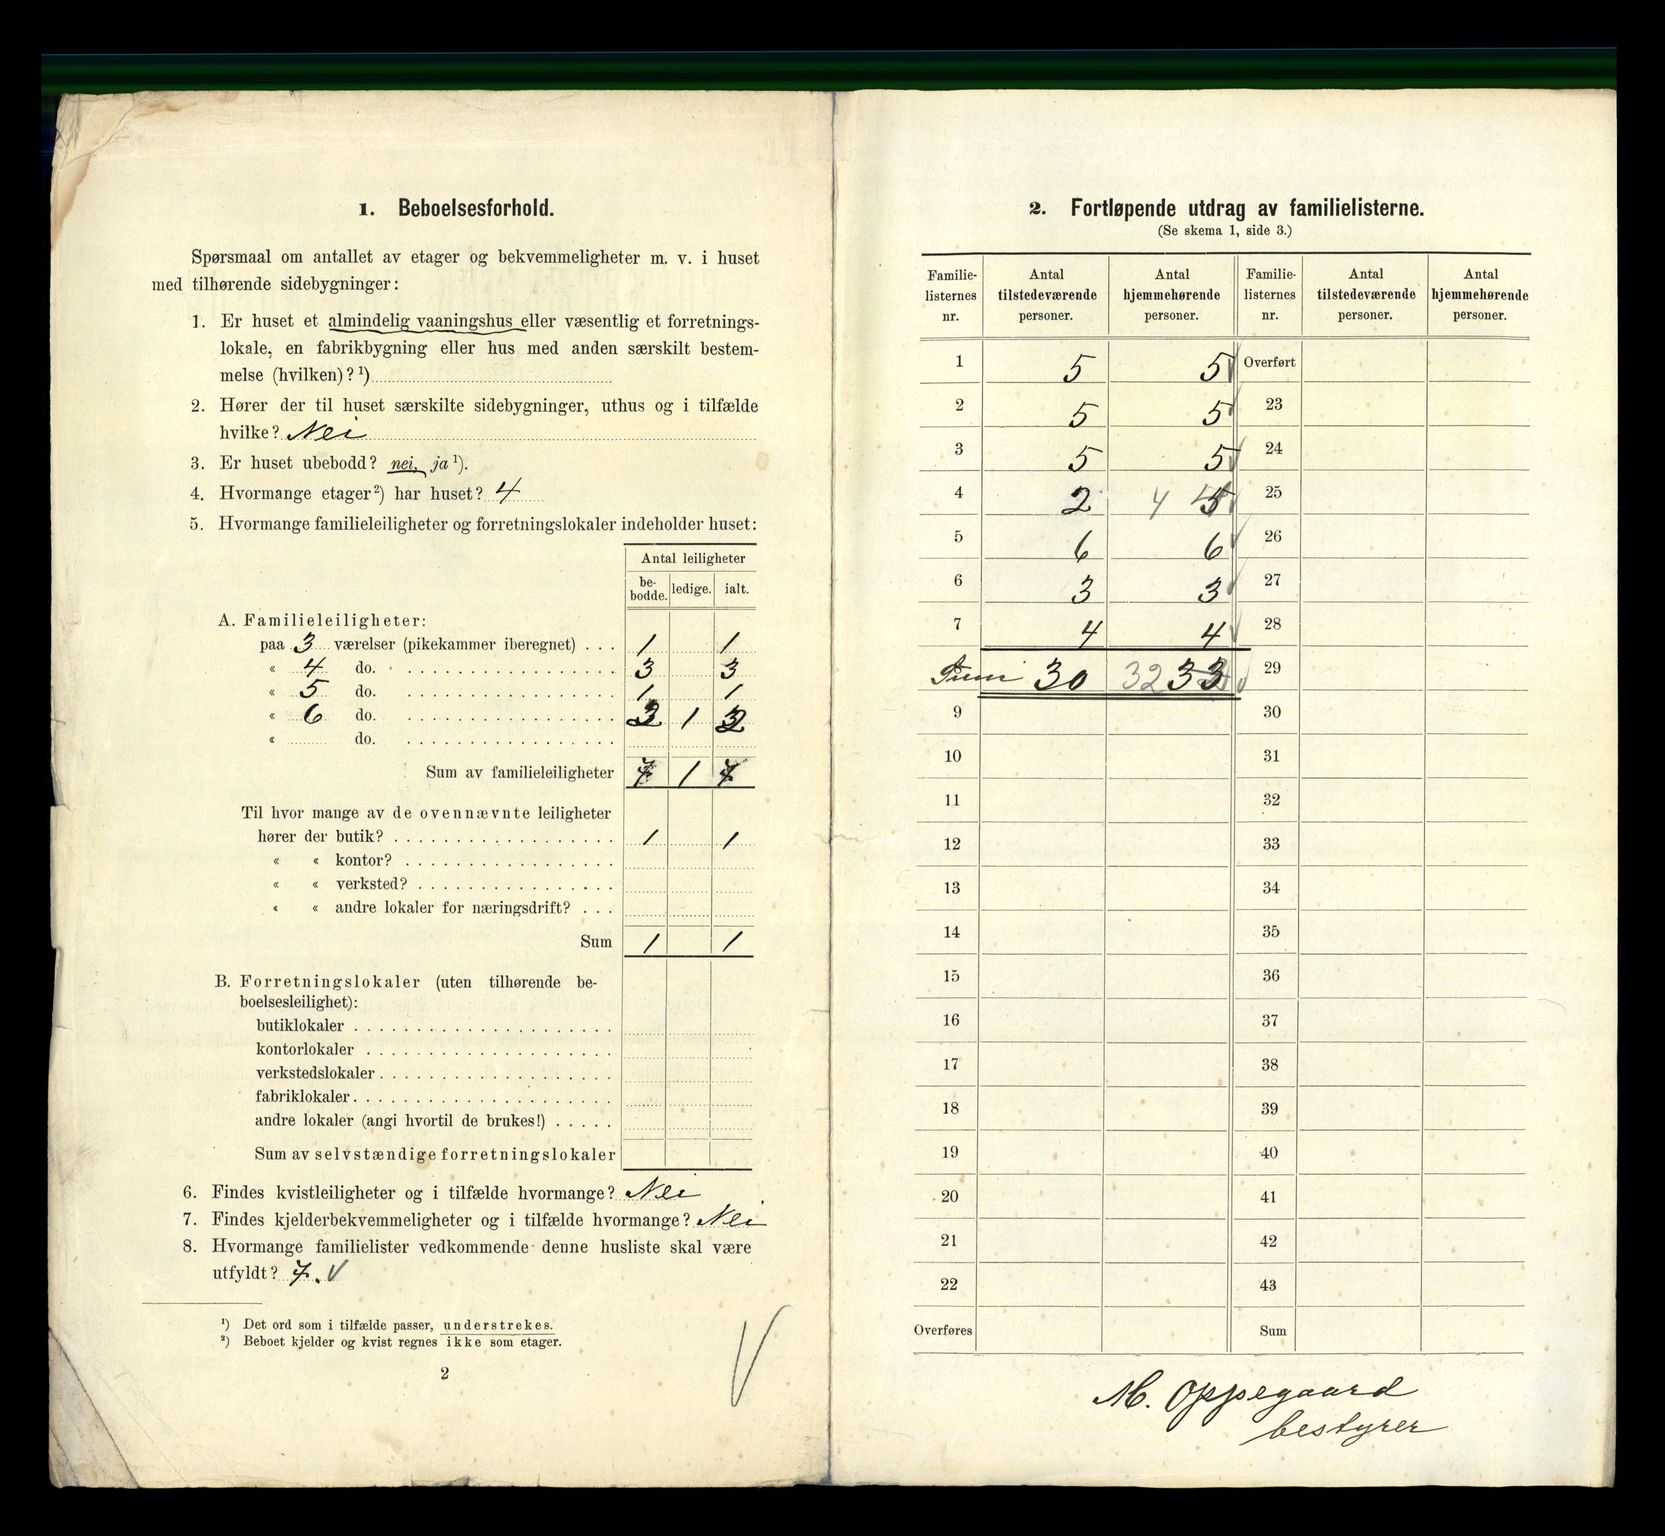 1. Beboelsesforhold.
Spørsmaal om antallet av etager og bekvemmeligheter m. v. i huset
med tilhørende sidebygninger:
1. Er huset et almindelig vaaningshus eller væsentlig et forretnings-
lokale, en fabrikbygning eller hus med anden særskilt bestem-
melse (hvilken)? ¹)
2. Hører der til huset særskilte sidebygninger, uthus og i tilfælde
hvilke? Nei
3. Er huset ubebodd? nei, ja ¹).
4. Hvormange etager ²) har huset? 4
5. Hvormange familieleiligheter og forretningslokaler indeholder huset:
Antal leiligheter
be-
bodde. ledige. ialt.
A. Familieleiligheter:
paa 3 værelser (pikekammer iberegnet) . . . 1 1
« 4 do. 3 3
« 5 do. 1 1
« 6 do. 2 1 3
« do.
Sum av familieleiligheter 7 1 7
Til hvor mange av de ovennævnte leiligheter
hører der butik? 1 1
« « kontor?
« « verksted?
« « andre lokaler for næringsdrift? . . .
Sum 1 1
B. Forretningslokaler (uten tilhørende be-
boelsesleilighet):
butiklokaler
kontorlokaler
verkstedslokaler
fabriklokaler
andre lokaler (angi hvortil de brukes!)
Sum av selvstændige forretningslokaler
6. Findes kvistleiligheter og i tilfælde hvormange? Nei
7. Findes kjelderbekvemmeligheter og i tilfælde hvormange? Nei
8. Hvormange familielister vedkommende denne husliste skal være
utfyldt? 7. V
¹) Det ord som i tilfælde passer, understrekes.
²) Beboet kjelder og kvist regnes ikke som etager.
2
V
2. Fortløpende utdrag av familielisterne.
(Se skema 1, side 3.)
Familie-
listernes
nr. Antal
tilstedeværende
personer. Antal
hjemmehørende
personer. Familie-
listernes
nr. Antal
tilstedeværende
personer. Antal
hjemmehørende
personer.
1 5 5 Overført
2 5 5 23
3 5 5 24
4 2 4 5 25
5 6 6 26
6 3 3 27
7 4 4 28
Sum 30 32 33 29
9 30
10 31
11 32
12 33
13 34
14 35
15 36
16 37
17 38
18 39
19 40
20 41
21 42
22 43
Overføres Sum
M. Oppegaard
bestyrer